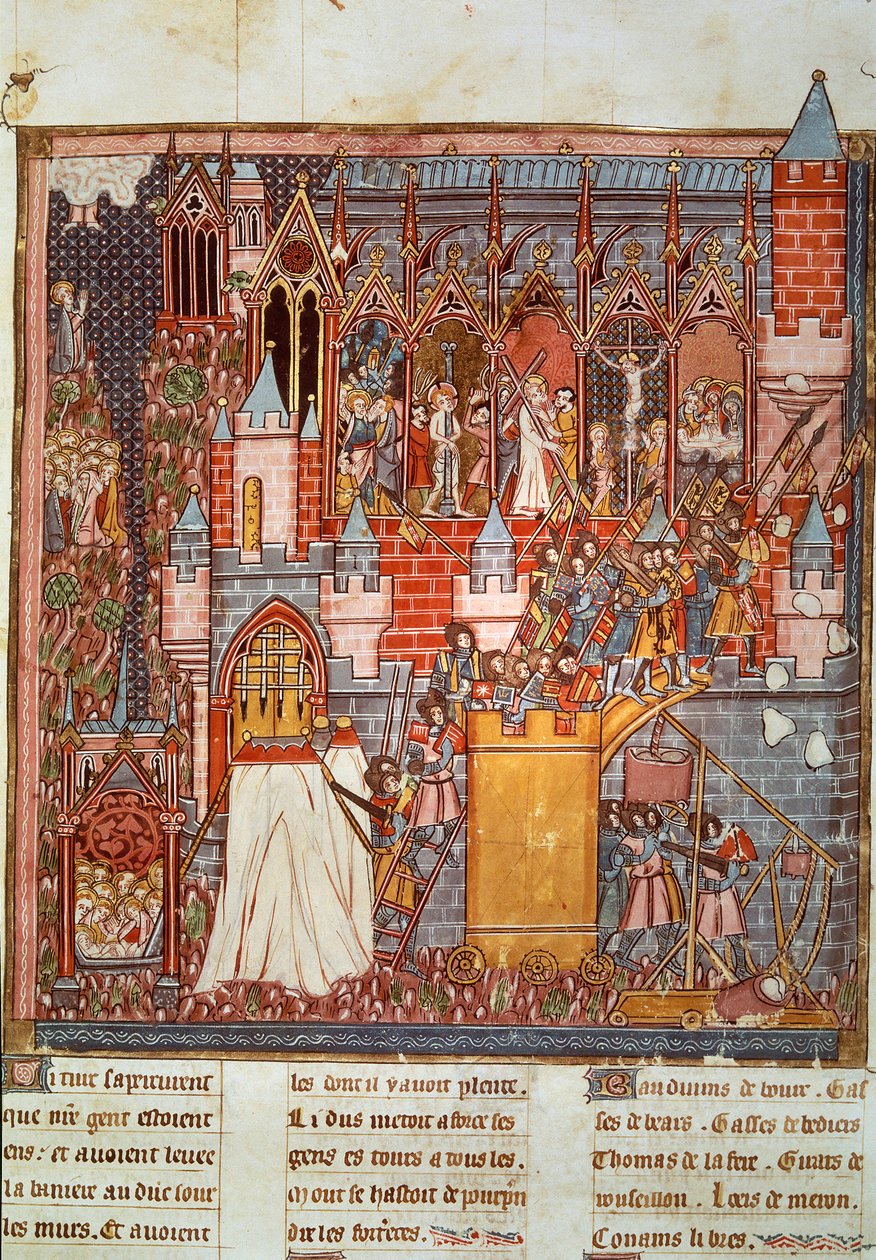 Li turc saperciurent
que nr̃e gent estoient
ens: et avoient levee
la baniere au duc sour
les murs. Et avoient
les dont il yavoit plente.
Li dus metoit aforce ses
gens es tours a tous les.
Mout se hastoit de pourpñ
dre les fort̾eces.
Bauduins de bourc. Gas
ses de bears. Gasses de bediers
Thomas de la fere. Gurars de
rouseillon. Loeis de meron.
Conains li bres.